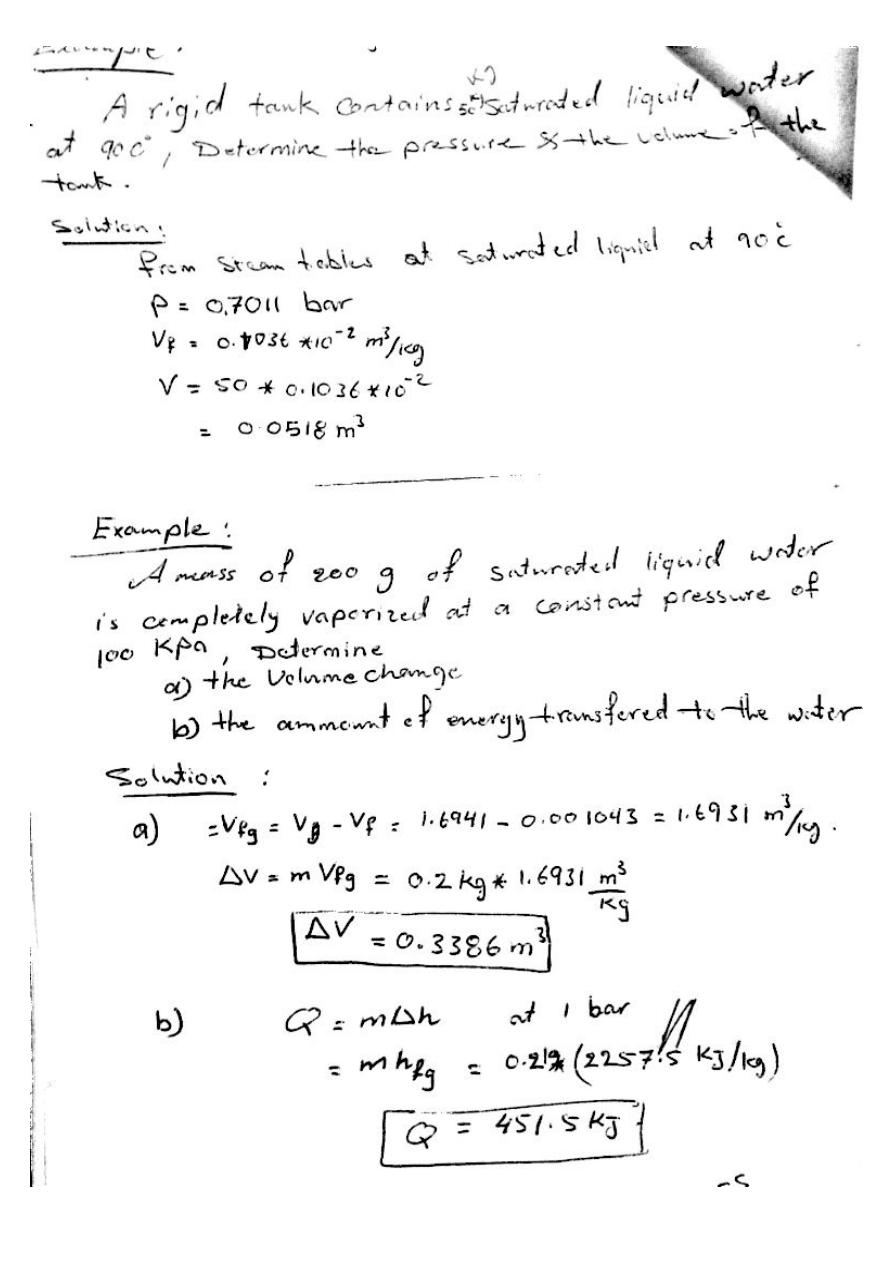 Example:
A rigid tank contains 50 kg saturated liquid water
at 90 C°, Determine the pressure & the volume of the
tank.
Solution:
from steam tables at saturated liquid at 90 c°
P = 0.7011 bar
Vf = 0.1036 *10⁻² m³/kg
V = 50 * 0.1036 *10⁻²
= 0.0518 m³
Example:
A mass of 200 g of saturated liquid water
is completely vaporized at a constant pressure of
100 KPa, Determine
a) the Volume change
b) the ammount of energy transfered to the water
Solution :
a) =Vfg = Vg - Vf = 1.6941 - 0.001043 = 1.6931 m³/kg.
ΔV = m Vfg = 0.2 kg * 1.6931 m³/Kg
ΔV = 0.3386 m³
b) Q = mΔh at 1 bar
= m hfg = 0.2 * (2257.5 KJ/kg)
Q = 451.5 KJ